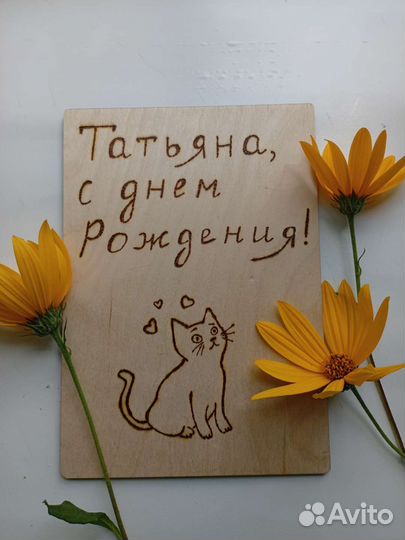 Татьяна,
с днем
Рождения!
Avito